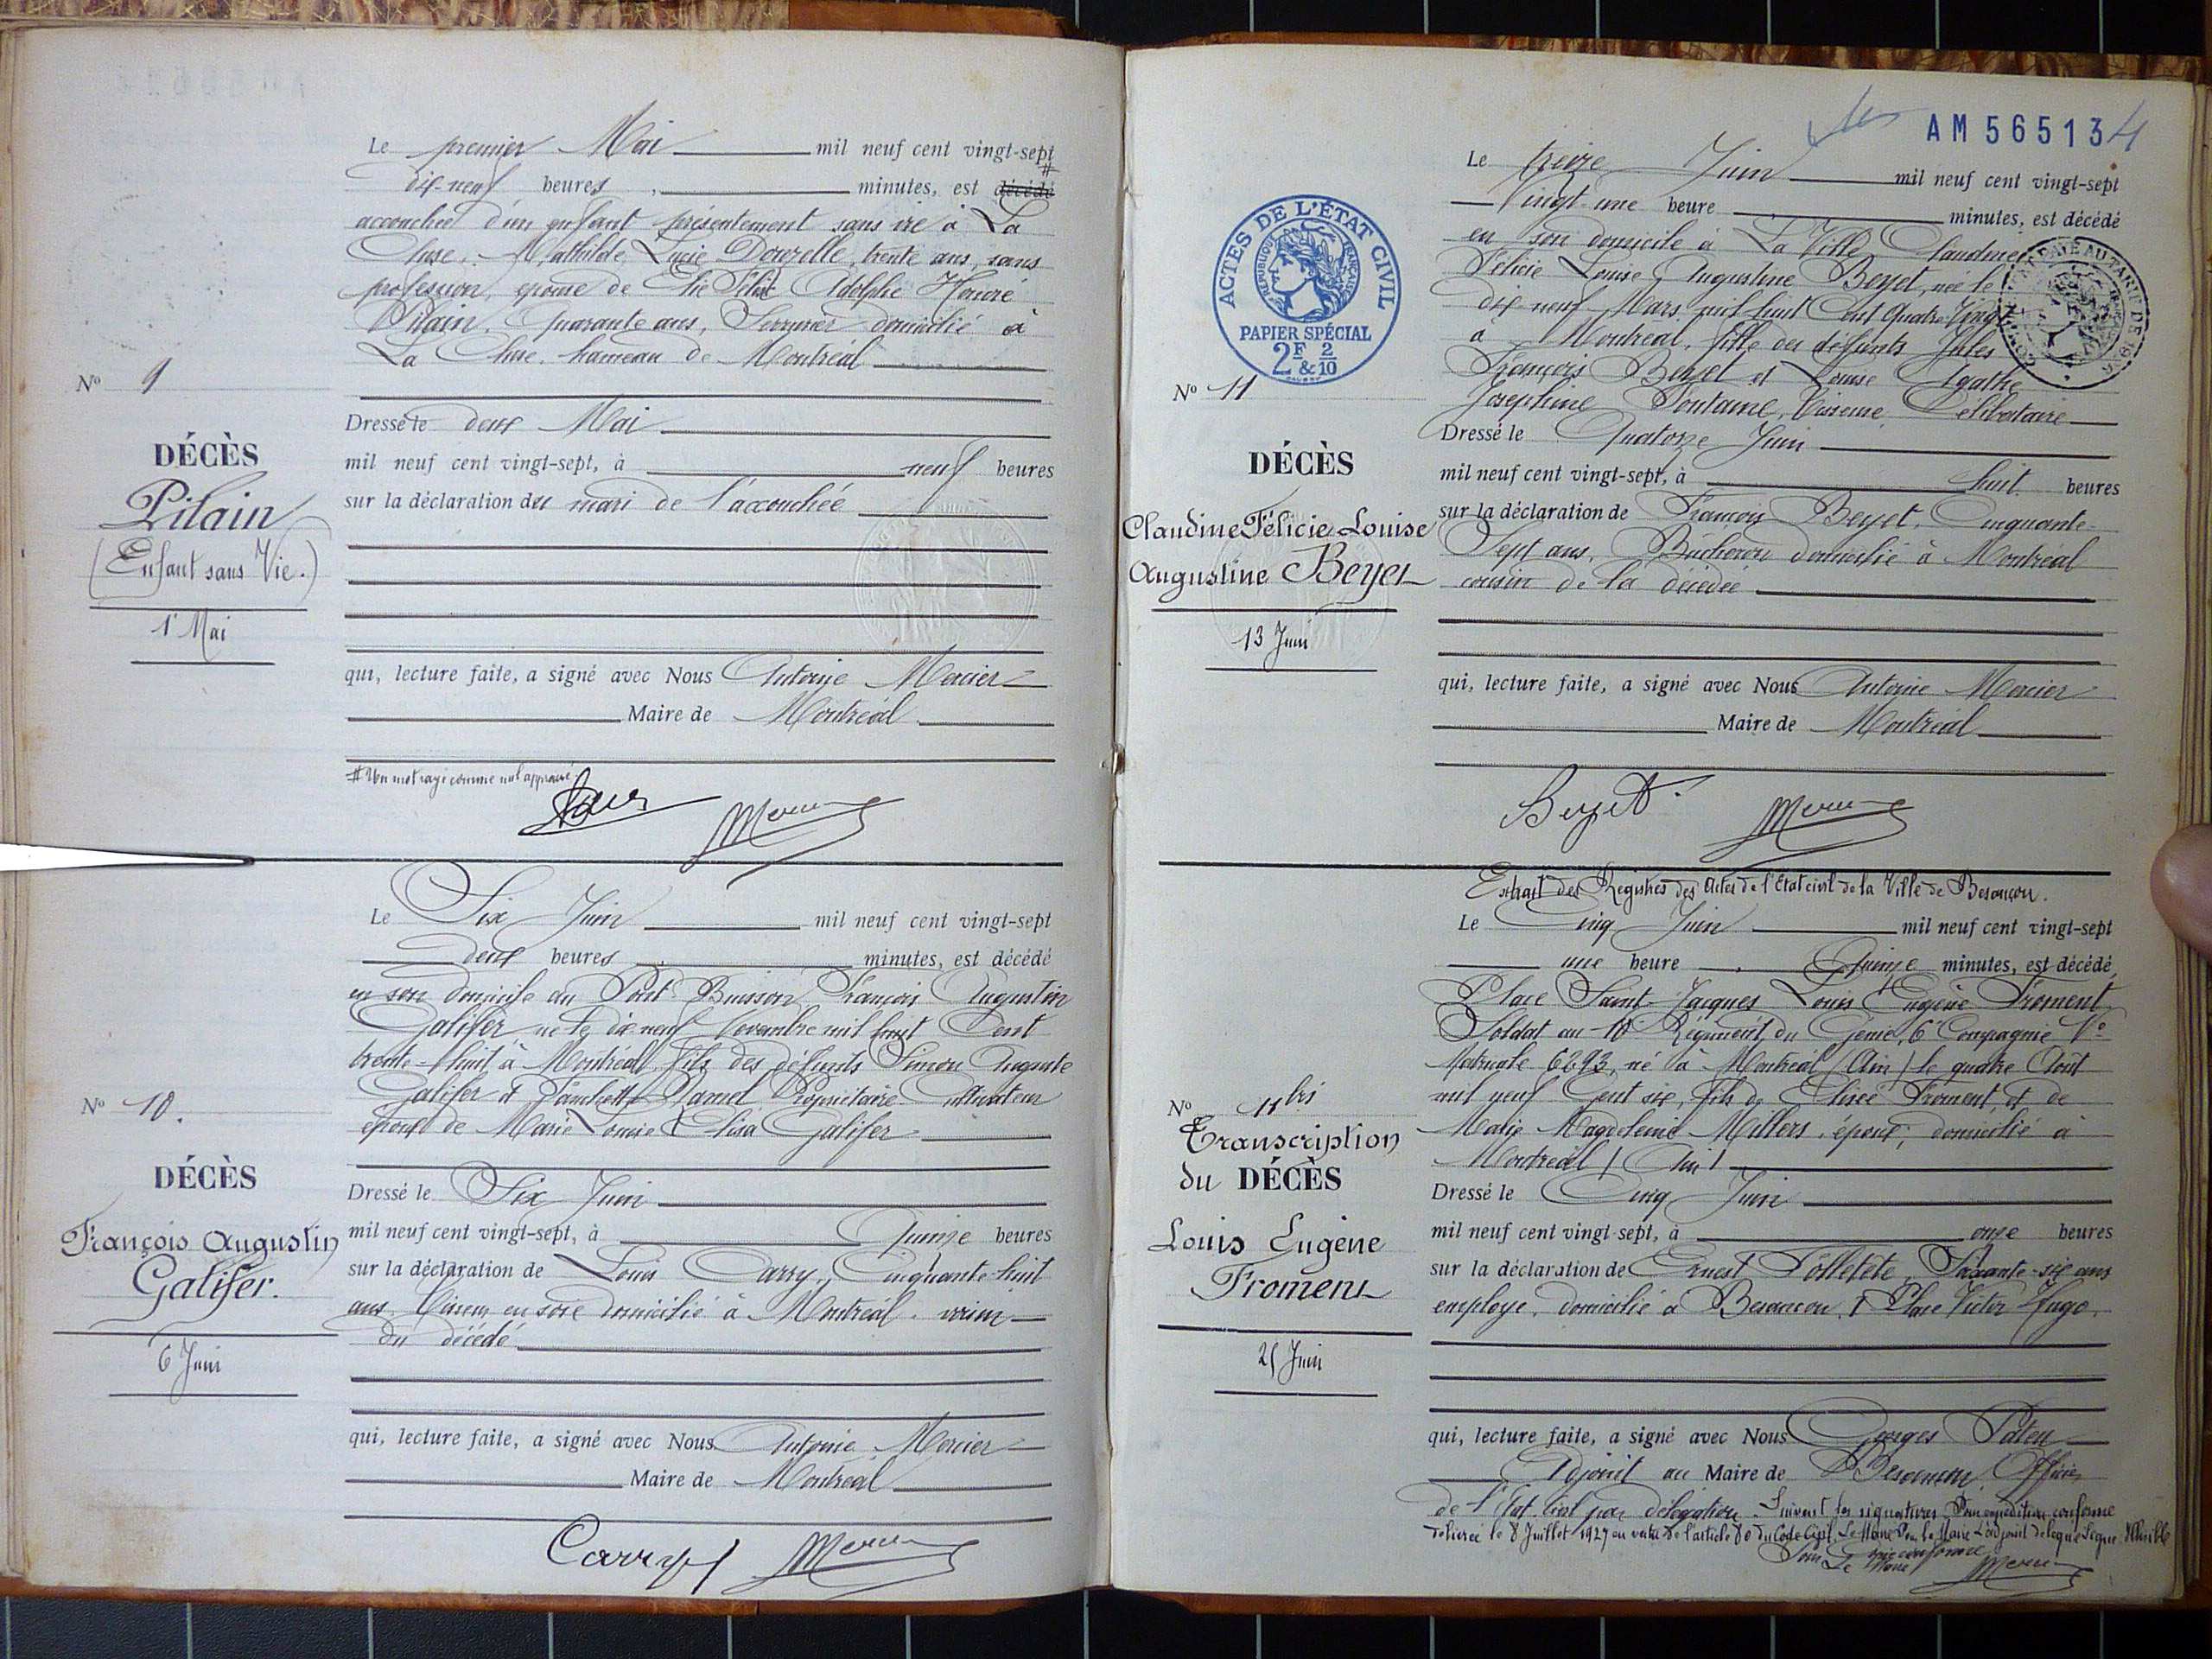 Le premier Mai mil neuf cent vingt-sept
dix-neuf heures, minutes, est décédé #
accouchée d'un enfant présentement sans vie à La
Cluse, Mathilde Lucie Douzelle, trente ans, sans
profession, épouse de Elie Félix Adolphe Honoré
Pilain, quarante ans, Serrurier domicilié à
La Cluse, hameau de Montréal
No 9
DÉCÈS
Pilain
(Enfant sans Vie.)
1 Mai
Dressé le deux Mai
mil neuf cent vingt-sept, à neuf heures
sur la déclaration du mari de l'accouchée
qui, lecture faite, a signé avec Nous Antoine Mercier
Maire de Montréal
# Un mot rayé comme nul approuvé.
Mercier
Le Six Juin mil neuf cent vingt-sept
deux heures, minutes, est décédé
en son domicile au Pont Buisson, François Augustin
Galifer né le dix neuf Novembre mil huit Cent
trente-huit à Montréal, fils des défunts Simon Auguste
Galifer et Panchette Propriétaire Cultivateur
époux de Marie Louise Elisa Galifer
No 10.
DÉCÈS
François Augustin
Galifer.
6 Juin
Dressé le Six Juin
mil neuf cent vingt-sept, à Quinze heures
sur la déclaration de Louis Carry, Cinquante-huit
ans, Tisseur en soie domicilié à Montréal. voisin
du décédé
qui, lecture faite, a signé avec Nous Antoine Mercier
Maire de Montréal
Carry Mercier
AM 565134
Le treize Juin mil neuf cent vingt-sept
Vingt-une heure minutes, est décédé
en son domicile à La Ville, Claudine
Félicie Louise Augustine Beyet, née le
dix neuf Mars mil huit Cent Quatre Vingt
à Montréal, fille des défunts Jules
François Beyet et Louise Agathe
Joséphine Fontaine, Tisseuse, Célibataire
ACTES DE L'ÉTAT CIVIL
RÉPUBLIQUE FRANÇAISE
PAPIER SPÉCIAL
2F & 2/10
No 11
DÉCÈS
Claudine Félicie Louise
Augustine Beyet
13 Juin
Dressé le Quatorze Juin
mil neuf cent vingt-sept, à huit heures
sur la déclaration de François Beyet, Cinquante-
Sept ans, Bûcheron domicilié à Montréal
cousin de la décédée
qui, lecture faite, a signé avec Nous Antoine Mercier
Maire de Montréal
Beyet Mercier
Extrait des Registres des Actes de l'Etat civil de la Ville de Besançon.
Le Cinq Juin mil neuf cent vingt-sept
une heure, Quinze minutes, est décédé,
Place Saint-Jacques Louis Eugène Froment
Soldat au 10e Régiment du Génie, 6e Compagnie No
Matricule 6293, né à Montréal (Ain) le quatre Août
mil neuf Cent six, fils de Elisée Froment, et de
Marie Magdeleine Millers, époux, domicilié à
Montréal (Ain)
No 11 bis
Transcription
du DÉCÈS
Louis Eugène
Froment
25 Juin
Dressé le Cinq Juin
mil neuf cent vingt-sept, à onze heures
sur la déclaration de Ernest Folletête, Soixante-six ans
employé, domicilié à Besançon, 1 Place Victor Hugo.
qui, lecture faite, a signé avec Nous Georges Pateu
Adjoint au Maire de Besançon, Officier
de l'Etat Civil par délégation. Suivent les signatures. Pour expédition conforme
délivrée le 8 Juillet 1927 en vertu de l'article 80 du Code Civil. Le Maire Pour le Maire L'adjoint délégué Signé Illisible
Pour copie conforme
Le Maire Mercier